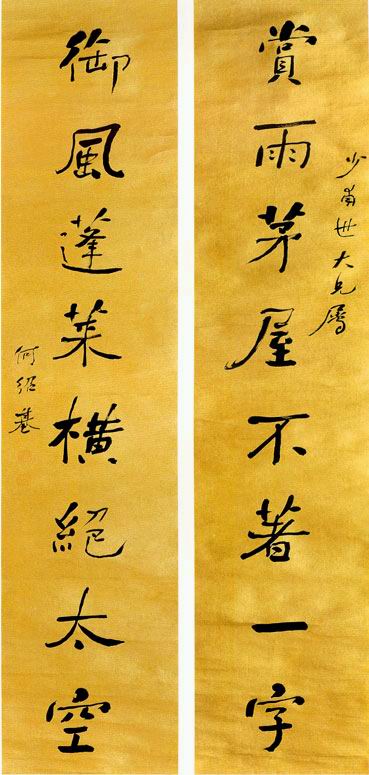 少甫世大兄屬
賞雨茅屋不著一字
御風蓬萊橫絕太空
何紹基